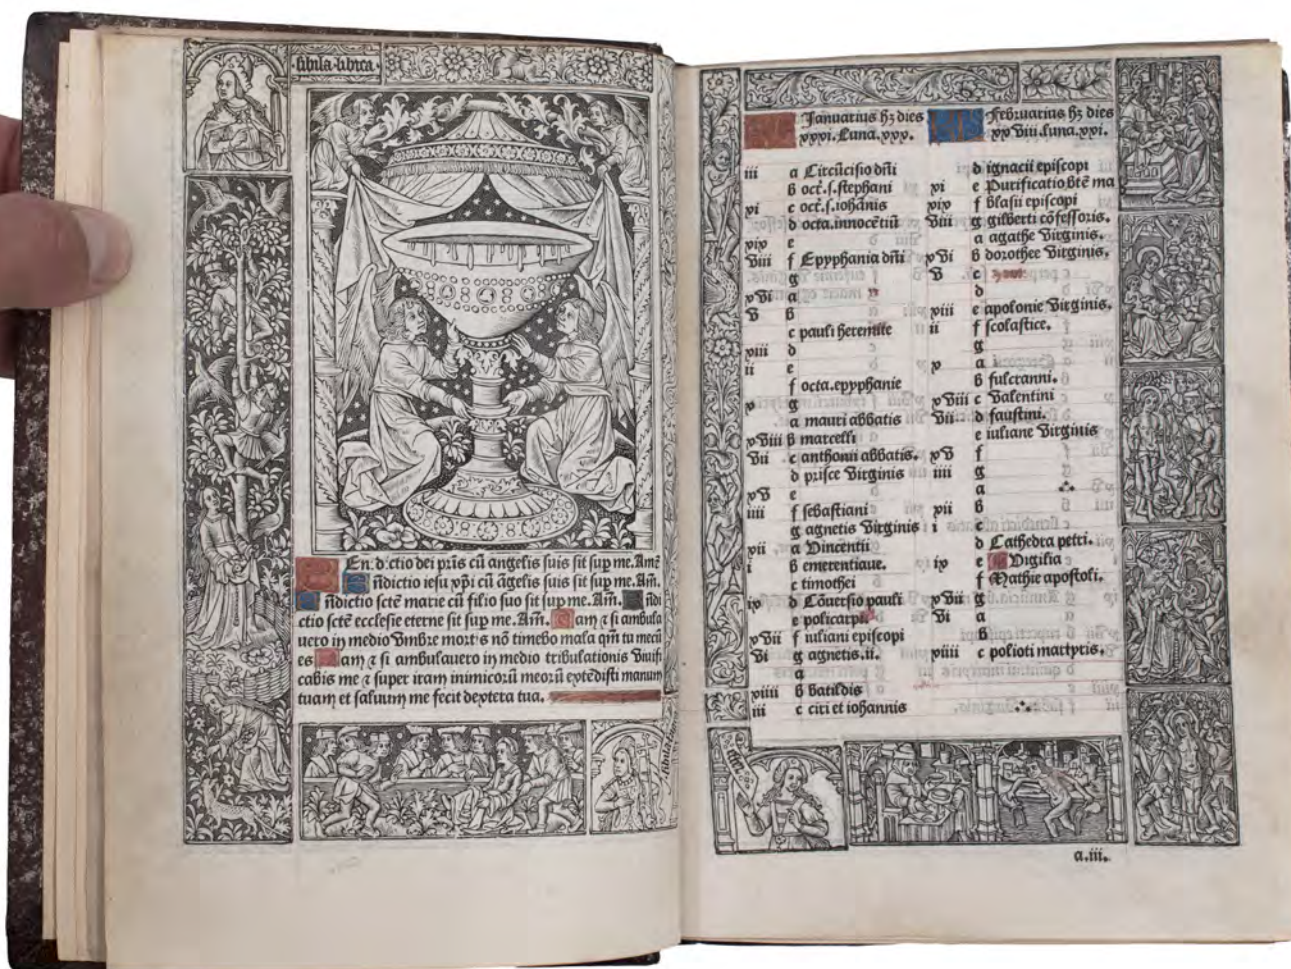 sibila libica
En d:ctio dei pr̄is cū angelis suis sit sup me. Am̄e
n̄dictio iesu xp̄i cū āgelis suis sit sup me. Am̄.
n̄dictio sctē marie cū filio suo sit sup me. Am̄. n̄di
ctio sctē ecclesie eterne sit sup me. Am̄. am ⁊ si ambula
uero in medio vmbre mort⁹s nō timebo mala qm̄ tu mecū
es am ⁊ si ambulauero in medio tribulationis viuifi
cabis me ⁊ super iram inimicorū meorū extēdisti manum
tuam et saluum me fecit dextera tua.
sibila
Januarius hꝫ dies
xxxi. Luna. xxx.
iii a Circūcisio dn̄i
b oct̄. s. stephani
xi c oct̄. s. iohānis
d octa. innocētiū
xix e
viii f Epyphania dn̄i
g
xvi a
v b
c pauli heremite
xiii d
ii e
f octa. epyphanie
x g
a mauri abbatis
xviii b marcelli
vii c anthonii abbatis.
d prisce virginis
xv e
iiii f sebastiani
g agnetis virginis
xii a vincentii
i b emerentiane.
c timothei
ix d Cōuersio pauli
e policarpi
xvii f iuliani episcopi
vi g agnetis. ii.
a
xiiii b batildis
iii c ciri et iohannis
februarius hꝫ dies
xxviii. luna. xxi.
d ignacii episcopi
xi e Purificatio btē ma
xix f blasii episcopi
viii g gilberti cōfessoris.
a agathe virginis.
xvi b dorothee virginis.
v c
d
xiii e apolonie virginis.
ii f scolastice.
g
x a
b fulcranni.
xviii c valentini
vii d faustini.
e iuliane virginis
xv f
iiii g
a
xii b
i c
d Cathedra petri.
ix e Vigilia
f Mathie apostoli.
xvii g
vi a
b
xiiii c polioti martyris.
a.iii.